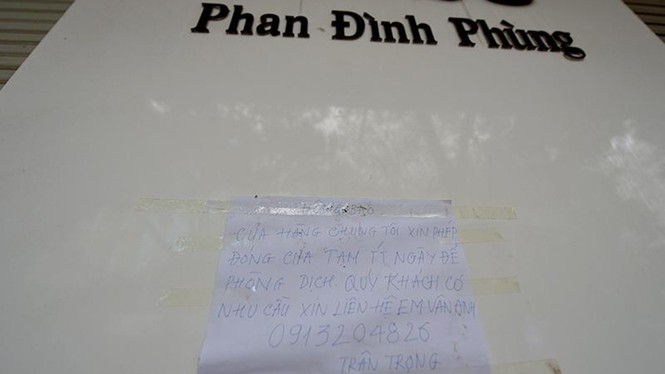 Phan Đình Phùng
CỬA HÀNG CHÚNG TÔI XIN PHÉP
ĐÓNG CỬA TẠM ÍT NGÀY ĐỂ
PHÒNG DỊCH. QUÝ KHÁCH CÓ
NHU CẦU XIN LIÊN HỆ EM VÂN ANH
0913204826
TRÂN TRỌNG